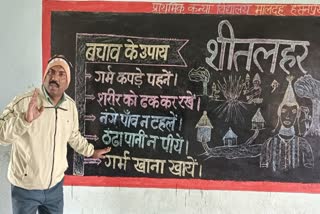 प्राथमिक कन्या विद्यालय मालदह हसनपुर
बचाव के उपाय
शीतलहर
- गर्म कपड़े पहनें।
- शरीर को ढक कर रखें।
- नंगे पाँव न टहलें।
- ठंढा पानी न पीयें।
- गर्म खाना खायें।